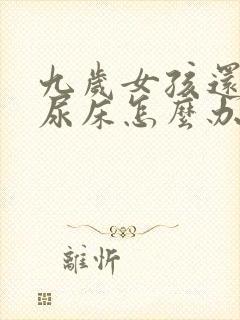 九歲女孩還
尿床怎麼办
離忻